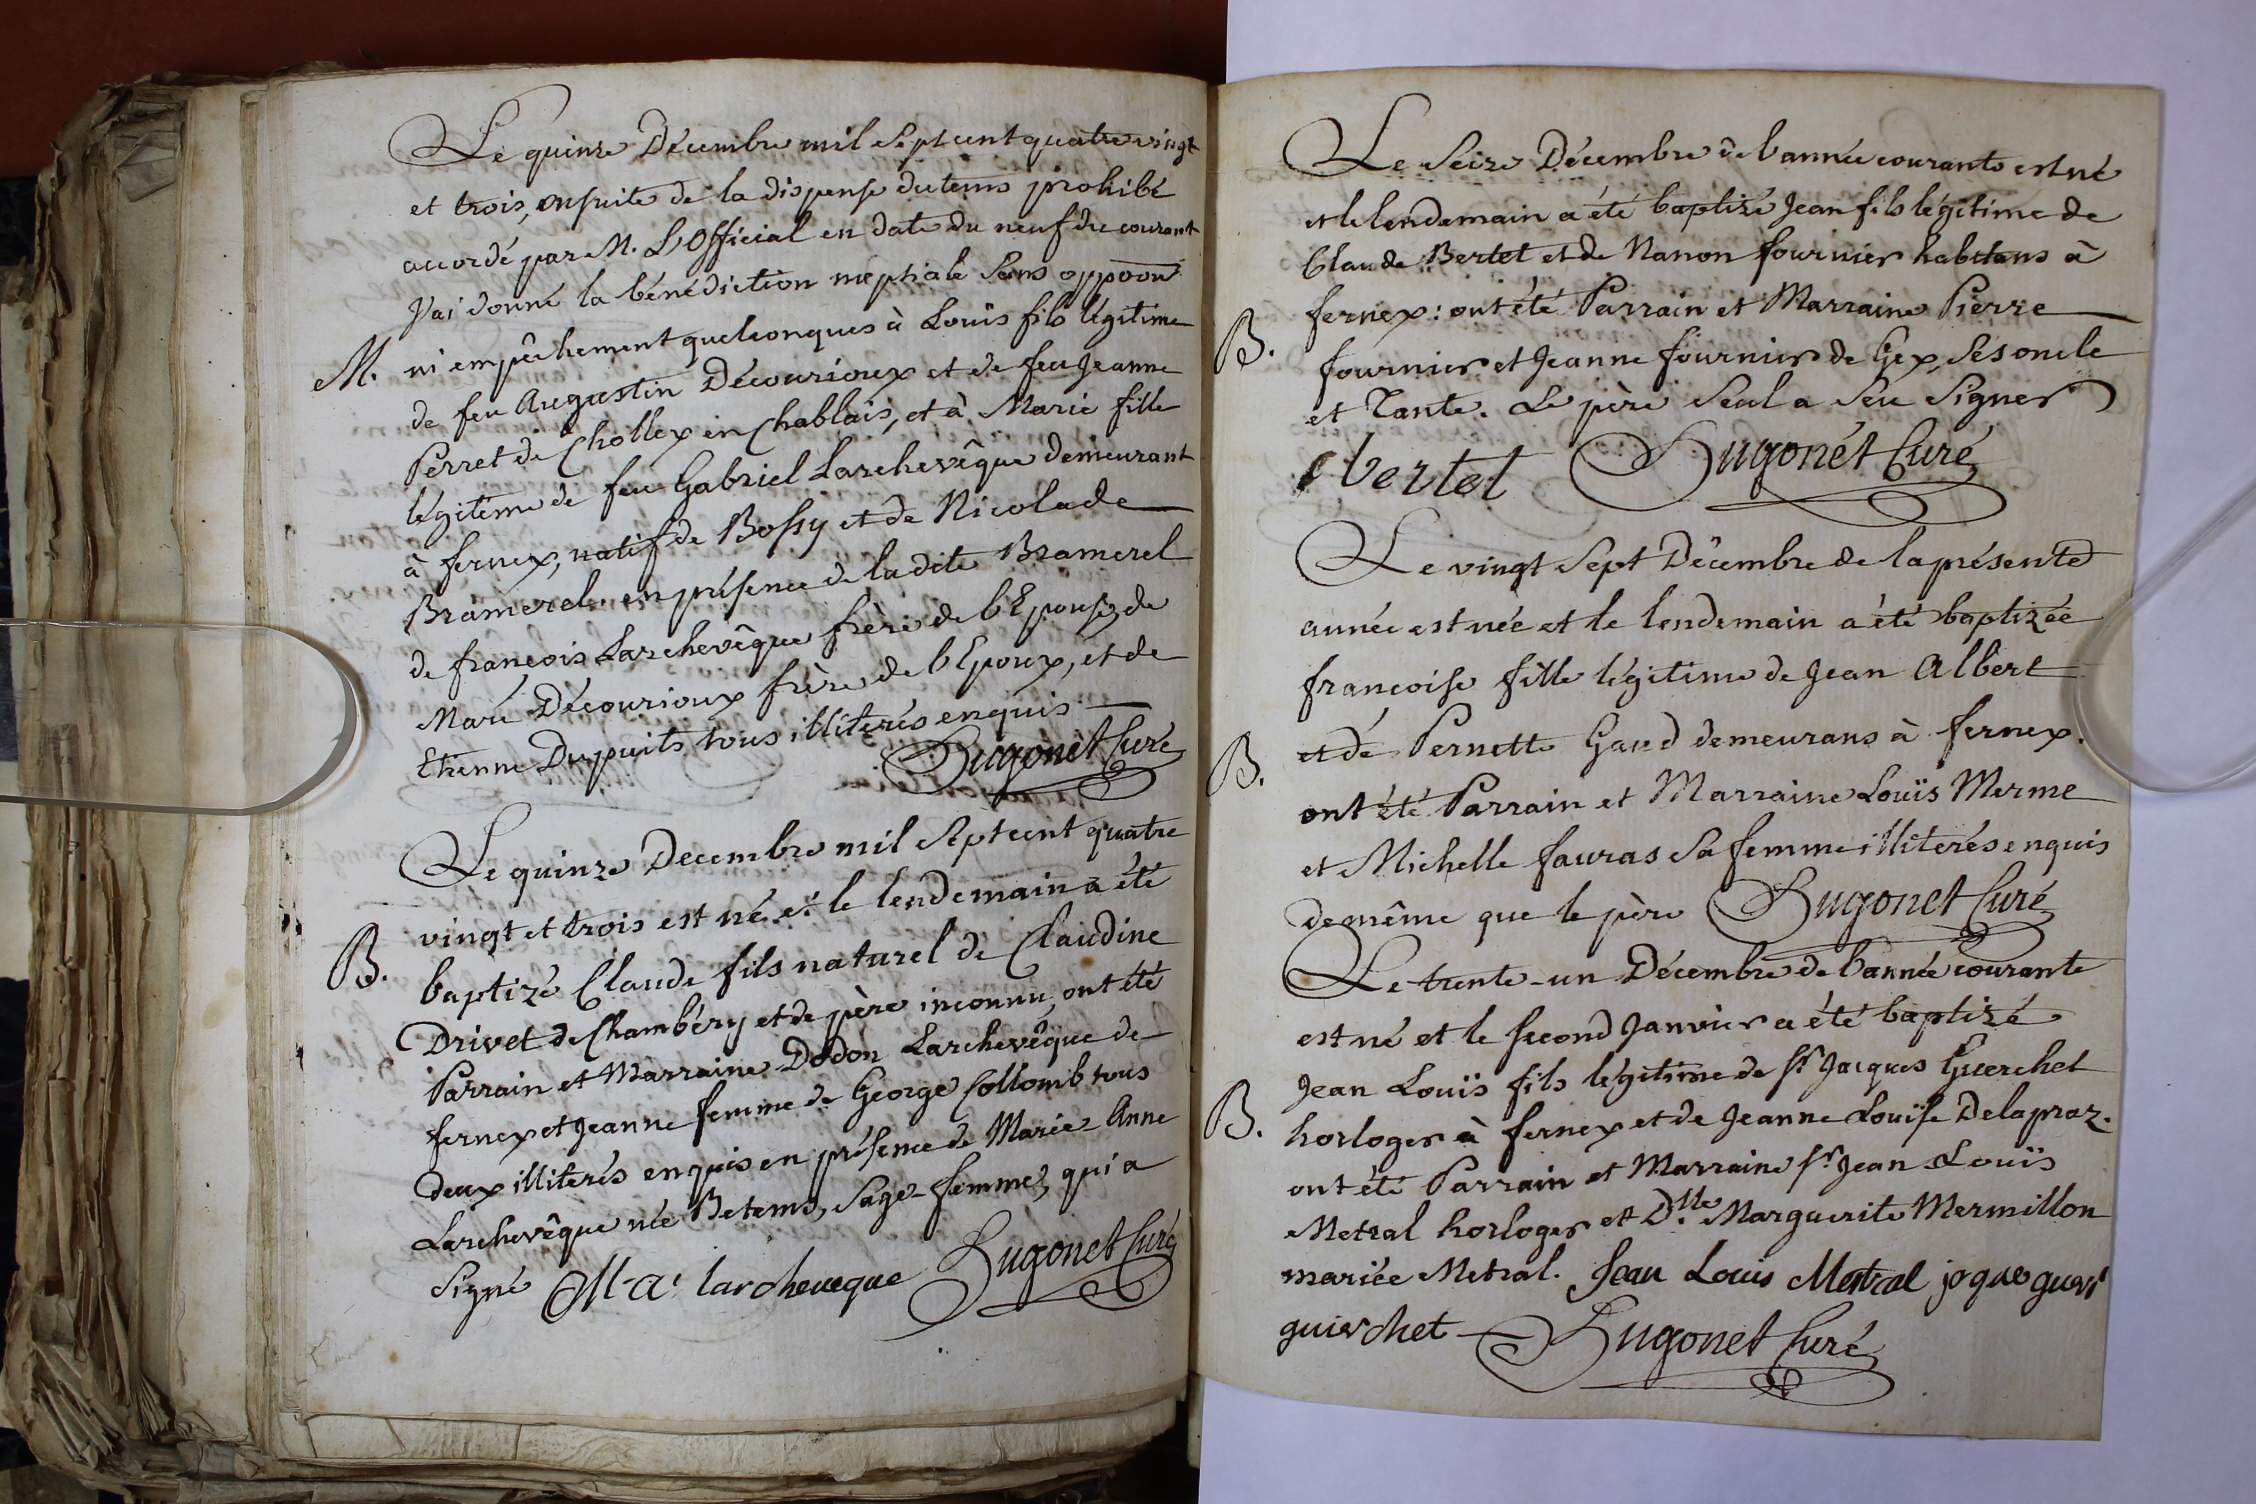 Le quinze Décembre mil Septcent quatre vingt
et trois, ensuite de la dispense du tems prohibé
accordé par M. L'Official en date du neuf du courant
J'ai donné la bénédiction nuptiale Sans oppoon
M. ni empêchement quelconques à Louis fils légitime
de feu Augustin Décourioux et de feu Jeanne
Perret de Chollex en Chablais, et à Marie fille
légitime de feu Gabriel Larchevêque demeurant
à fernex, natif de Bossy et de Nicolade
Bramerel. en présence de ladite Bramerel
de françois Larchevêque frère de l'Epouse, de
Marc Décourioux frère de l'Epoux, et de
Etienne Dupuits tous illiterés enquis
Hugonet Curé
Le quinze Decembre mil Septcent quatre
vingt et trois est né et le lendemain a été
B. baptizé Claude fils naturel de Claudine
Drivet de Chambéry et de père inconnu, ont été
Parrain et Marraine Dodon Larchevêque de
fernex et Jeanne femme de George Collomb tous
deux illiterés enquis en présence de Marie-Anne
Larchevêque née Betems, Sage-femme, qui a
Signé M-a: larcheveque Hugonet Curé
Le Seize Décembre de l'année courante est né
et le lendemain a été baptizé Jean fils légitime de
Claude Bertet et de Nanon fournier habitans à
B. fernex: ont été Parrain et Marraine Pierre
fournier et Jeanne fournier de Gex, Ses oncle
et Tante. Le père Seul a Seu Signer
Bertet Hugonet Curé
Le vingt Sept Décembre de la présente
année est née et le lendemain a été baptizée
françoise fille légitime de Jean Albert
B. et de Pernette Gaud demeurans à fernex.
ont été Parrain et Marraine Louïs Merme
et Michelle fauras Sa femme illiterés enquis
de même que le père Hugonet Curé
Le trente-un Décembre de l'année courante
est né et le second Janvier a été baptizé
Jean Louïs fils légitime de Sr Jacques Guerchet
B. horloger à fernex et de Jeanne Louïse Delapraz.
ont été Parrain et Marraine Sr Jean Louïs
Metral horloger et Dlle Marguerite Mermillon
mariée Metral. Jean Louis Mestral jaques guer
guerchet Hugonet Curé